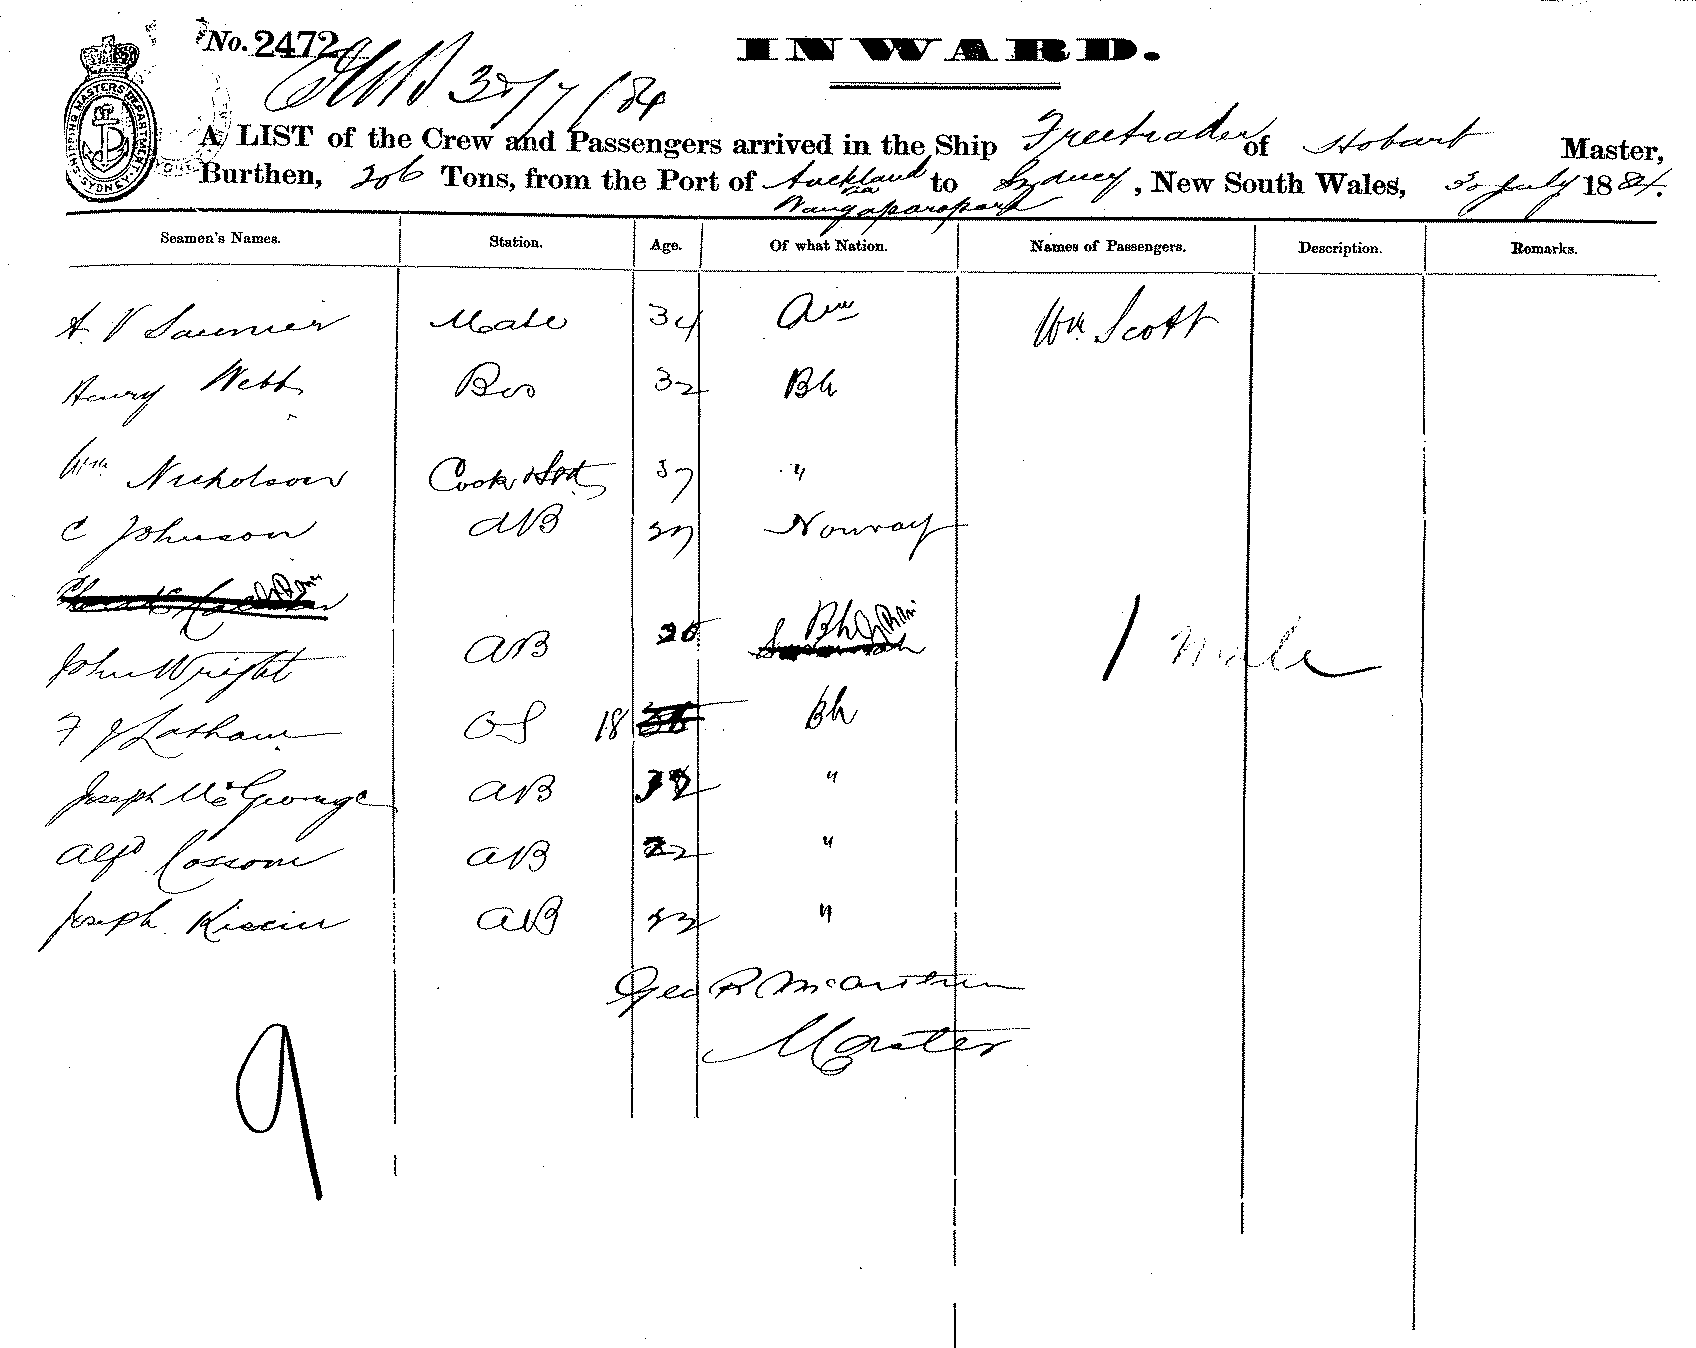 No. 2472
INWARD.
30/7/84
A LIST of the Crew and Passengers arrived in the Ship Freetrader of Hobart Master,
Burthen, 206 Tons, from the Port of Auckland via to Sydney, New South Wales, 30 July 1884.
Wangaparapara
SHIPPING MASTERS DEPARTMENT SYDNEY
Seamen's Names. Station. Age. Of what Nation. Names of Passengers. Description. Remarks.
A. V Saunier Mate 34 Am Wm Scott
Henry Webb Bos 32 Bh
Wm Nicholson Cook & Std 37 "
C Johnson AB 27 Norway
John Wright AB 26 Bh
1 Male
F J Latham OS 18 Bh
Joseph McGeorge AB 32 "
Alfd Cossom AB 22 "
Joseph AB 22 "
Geo R McArthur
Master
9